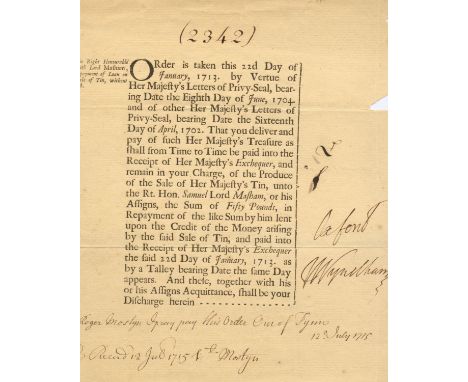 (2342)
Right Honourable
Lord Masham,
payment of Loan in
of Tin, without
ORder is taken this 22d Day of
January, 1713. by Vertue of
Her Majesty's Letters of Privy-Seal, bear-
ing Date the Eighth Day of June, 1704.
and of other Her Majesty's Letters of
Privy-Seal, bearing Date the Sixteenth
Day of April, 1702. That you deliver and
pay of such Her Majesty's Treasure as
shall from Time to Time be paid into the
Receipt of Her Majesty's Exchequer, and
remain in your Charge, of the Produce
of the Sale of Her Majesty's Tin, unto
the Rt. Hon. Samuel Lord Masham, or his
Assigns, the Sum of Fifty Pounds, in
Repayment of the like Sum by him lent
upon the Credit of the Money arising
by the said Sale of Tin, and paid into
the Receipt of Her Majesty's Exchequer
the said 22d Day of January, 1713. as
by a Talley bearing Date the same Day
appears. And these, together with his
or his Assigns Acquittance, shall be your
Discharge herein
Wyndham
Roger Mostyn I pray pay this Order Out of Tynn
12 July 1715
12 July 1715 Mostyn